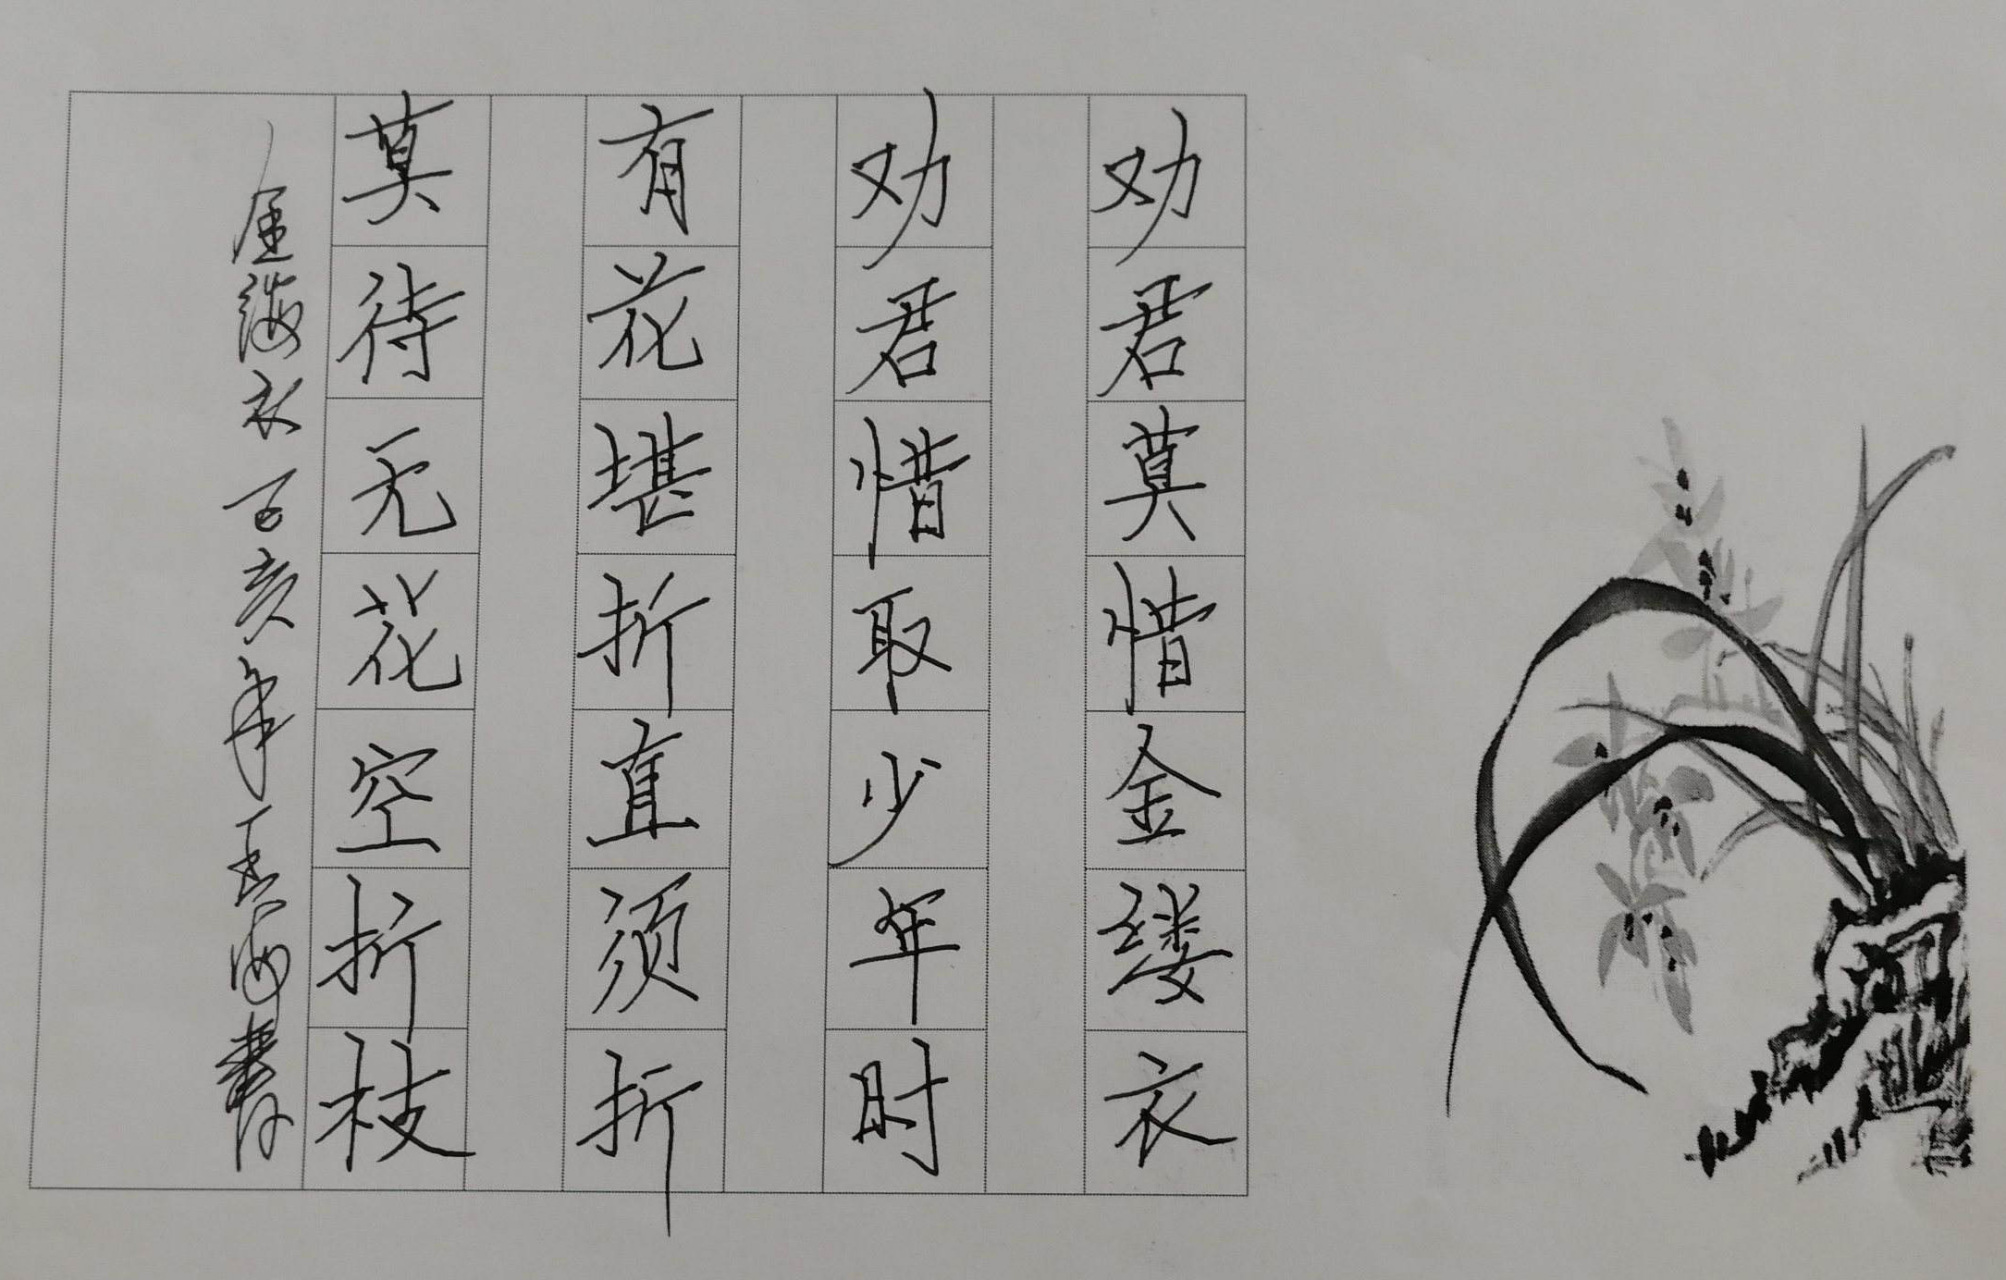 劝君莫惜金缕衣
劝君惜取少年时
有花堪折直须折
莫待无花空折枝
亥年 海书